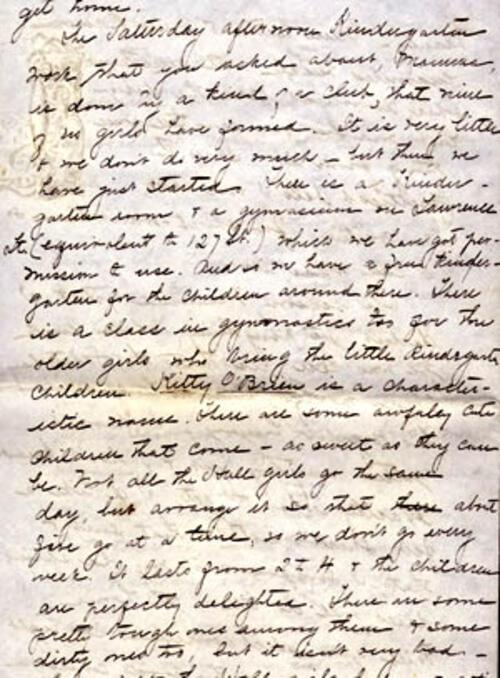 get home.
The Saturday afternoon Kindergarten
work that you asked about, Mamma,
is done by a kind of a club, that nine
of us girls have formed. It is very little
& we don't do very much – but then we
have just started. There is a Kinder-
garten room & a gymnasium on Lawrence
St. (equivalent to 127 St.) which we have got per-
mission to use. And so we have a free Kinder-
garten for the children around there. There
is a class in gymnastics too for the
older girls who bring the little Kindergarten
children. Kitty O'Brien is a character-
istic name. There are some awfully cute
children that come – as sweet as they can
be. Not all the girls go the same
day, but arrange it so that there about
five go at a time, so we don't go every
week. It lasts from 2 to 4 & the children
are perfectly delighted. There are some
pretty tough ones among them & some
dirty ones too, but it isn't very bad –